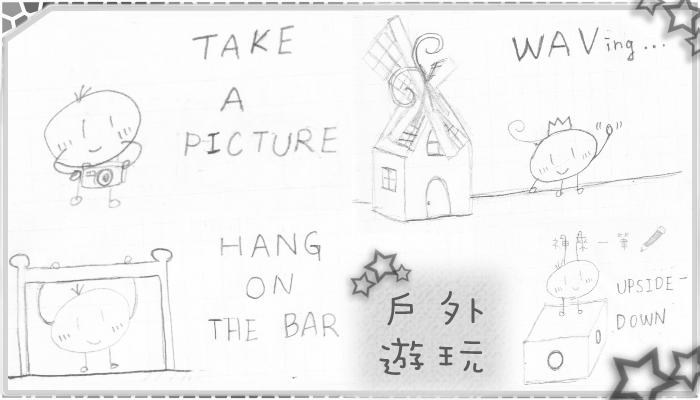 TAKE
A
PICTURE
WAVing...
HANG
ON
THE BAR
戶外
遊玩
神來一筆
UPSIDE-
DOWN